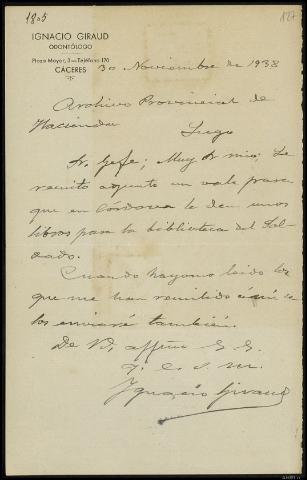 1805
IGNACIO GIRAUD
ODONTÓLOGO
Plaza Mayor, 3 — Teléfono 170
CÁCERES
30 Noviembre de 1938
Archivo Provincial de
Hacienda
Lugo
Sr. Gefe; Muy Sr mio; Le
remito adjunto un vale para
que en Córdova le den unos
libros para la biblioteca del Sol-
dado.
Cuando hayamos leido los
que me han remitido se
los enviaré también.
De Vd, affmo S. S.
q. e. s. m.
Ignacio Giraud